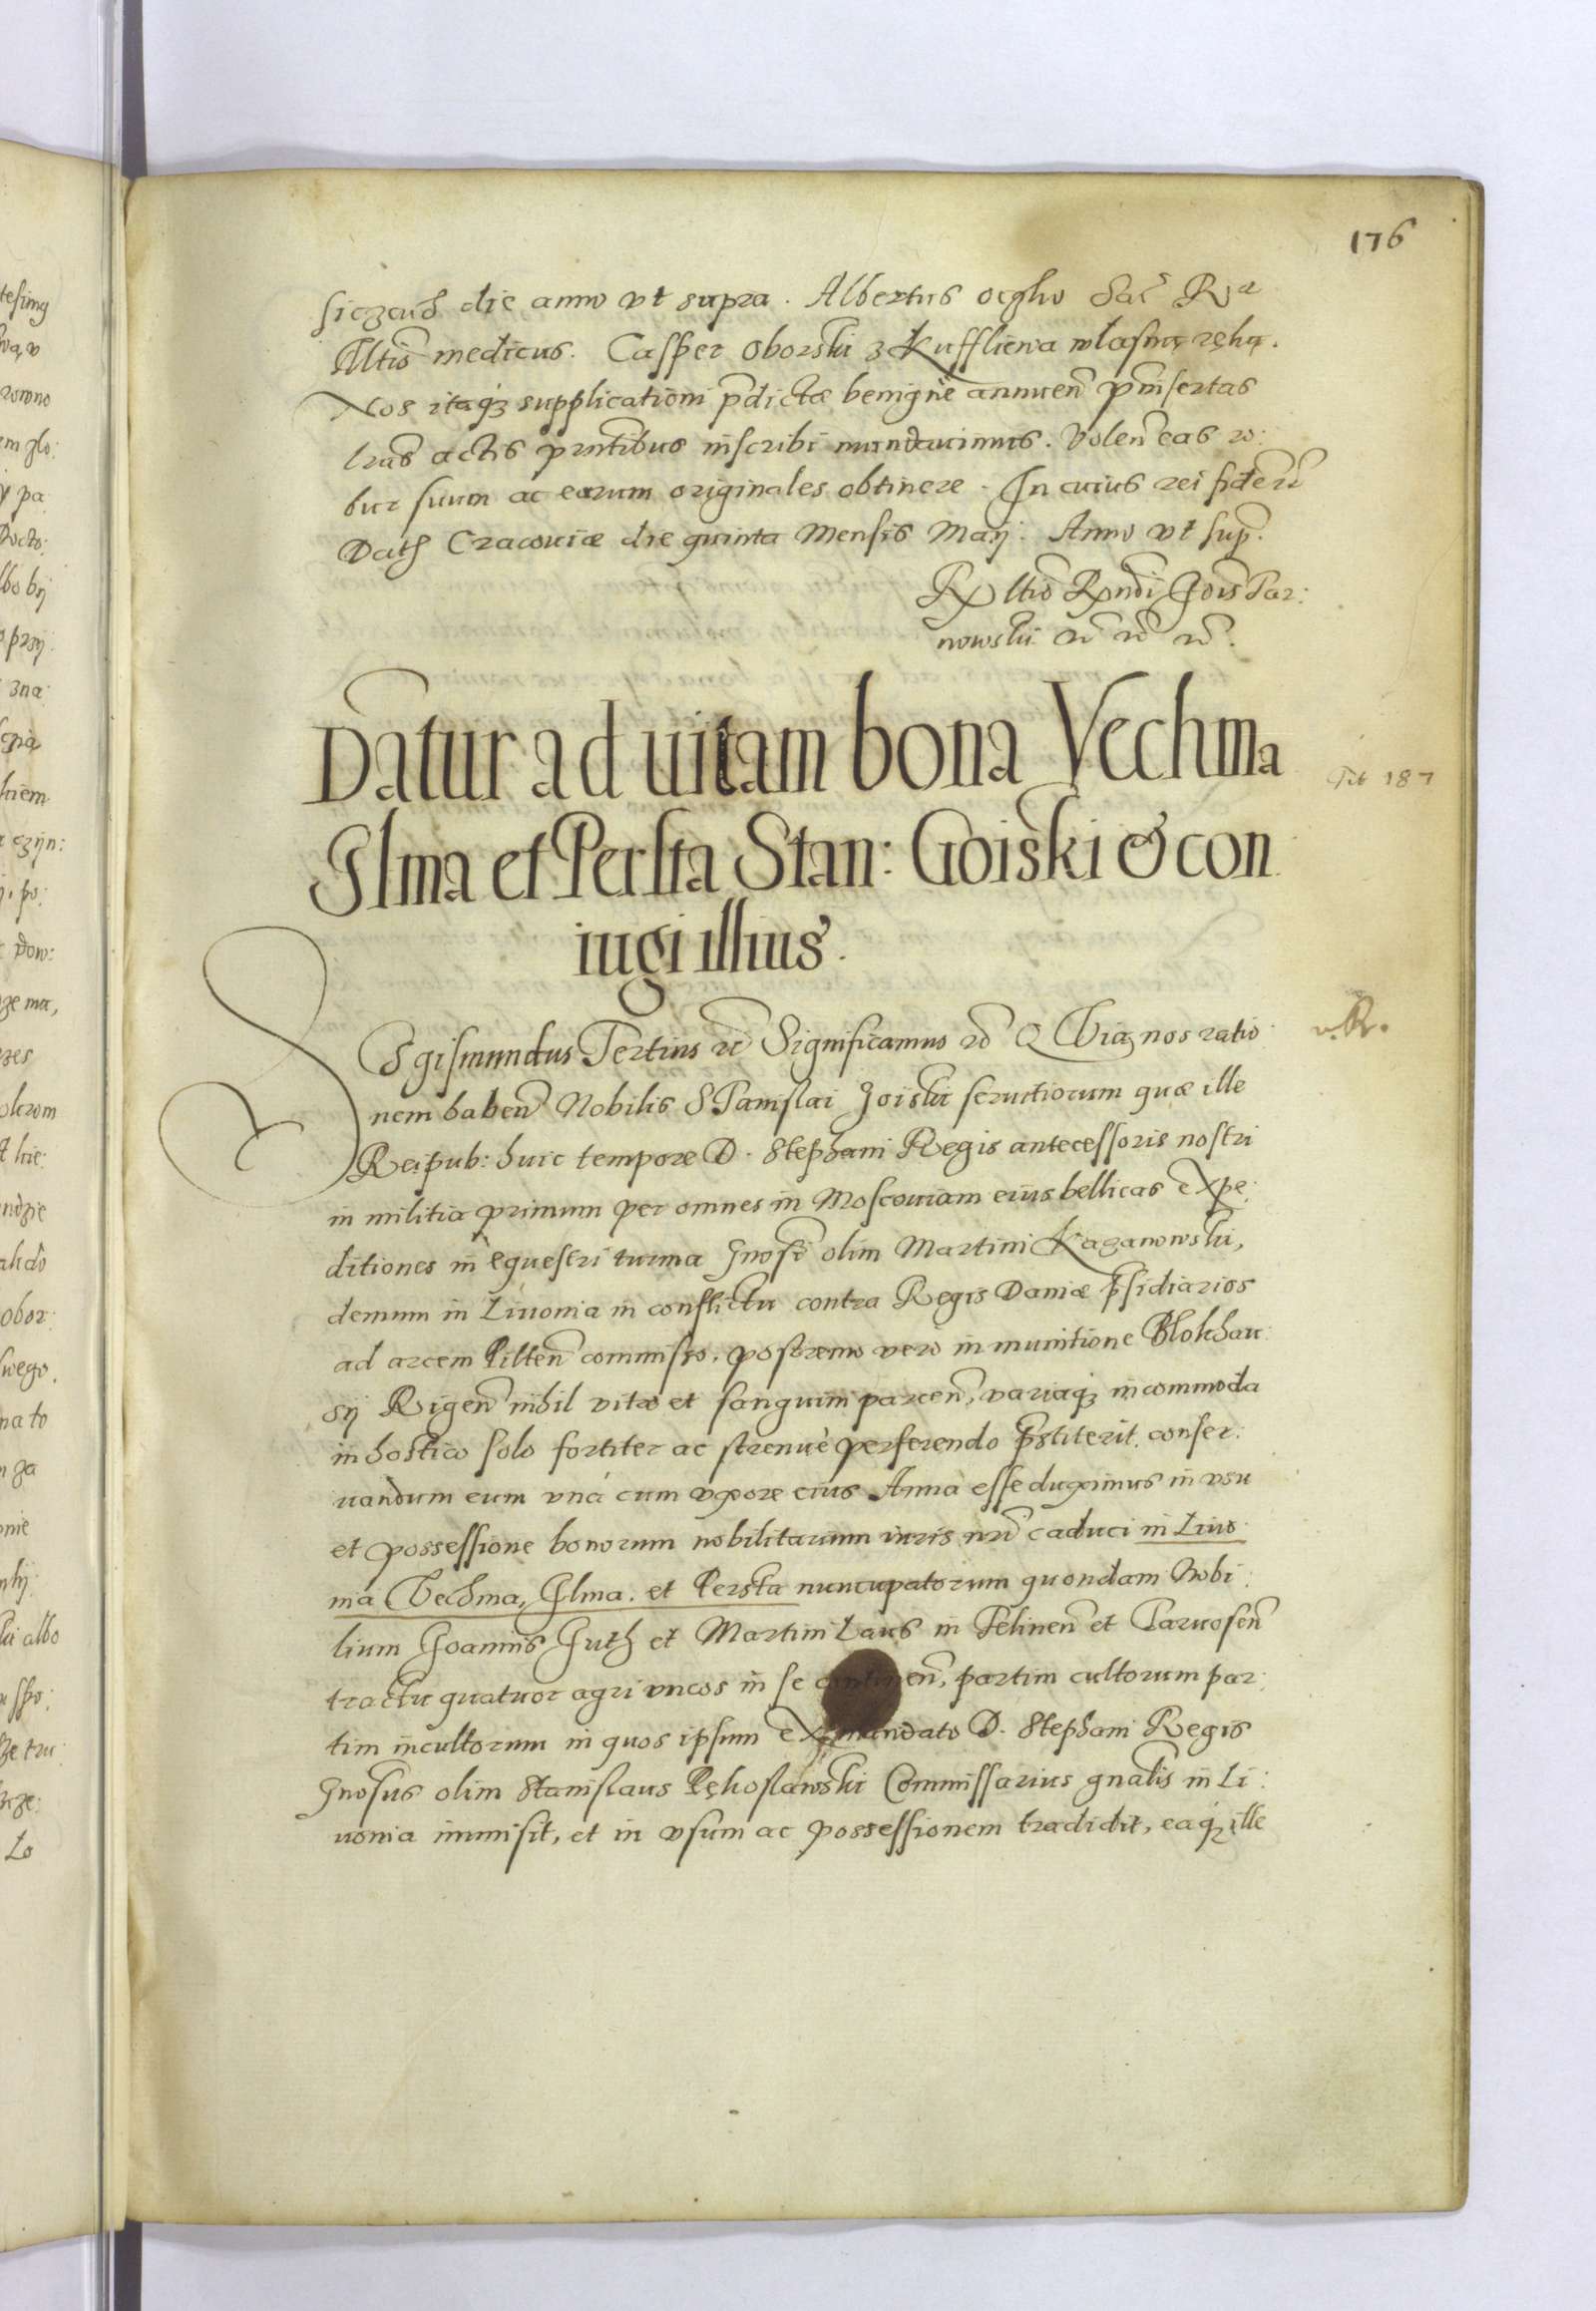 176
sieęcuch die anno vt supra. Albertus oczko Sac Rᵃ
Mtis medicus. Casper Oborski z Kuffliewa własną ręką.
Nos itaq₃ supplicationi pdictæ benigne annuen pinsertas
lras actis pntibus inscribi mandauimus. Volen eas ro:
bur suum ac earum originales obtinere. In cuius rei fidem
Dath Cracoviæ die quinta Mensis Maij. Anno vt sup.
R ltio Rndi Jois Tar:
nowski etc etc etc.
Datur ad uitam bona Vechma
Ilma et Perska Stan: Goiski & con
iugi illius.
Sigismundus Tertius etc Significamus etc Quia nos ratio
nem haben Nobilis Stanislai Joiski seruitiorum quæ ille
Reipub: huic tempore D. Stephani Regis antecessoris nostri
in militia primum per omnes in Moscouiam eius bellicas expe:
ditiones in equestri turma Gnosi olim Martini Kazanowski,
demum in Liuonia in conflictu contra Regis Daniæ psidiarios
ad arcem Pilten commisso, postremo vero in munitione Blokhau:
sij Rigen nihil vitæ et sanguini parcen, variaq₃ incommoda
in hostico solo fortiter ac strenuè perferendo pstiterit. conser:
uandum eum vná cum vxore eius Anna esse duximus in vsu
et possessione bonorum nobilitarium iuris nri caduci in Liuo:
nia Vechma, Ilma. et Perska nuncupatorum quondam Nobi:
lium Joannis Guth et Martini Laus in Felinen et Parnosen
tractu quatuor agri vncos in se continen, partim cultorum par:
tim incultorum in quos ipsum ex mandato D. Stephani Regis
Gnosus olim Stanislaus Pękoslawski Commissarius gnalis in Li:
uonia immisit, et in vsum ac possessionem tradidit, eaq₃ ille